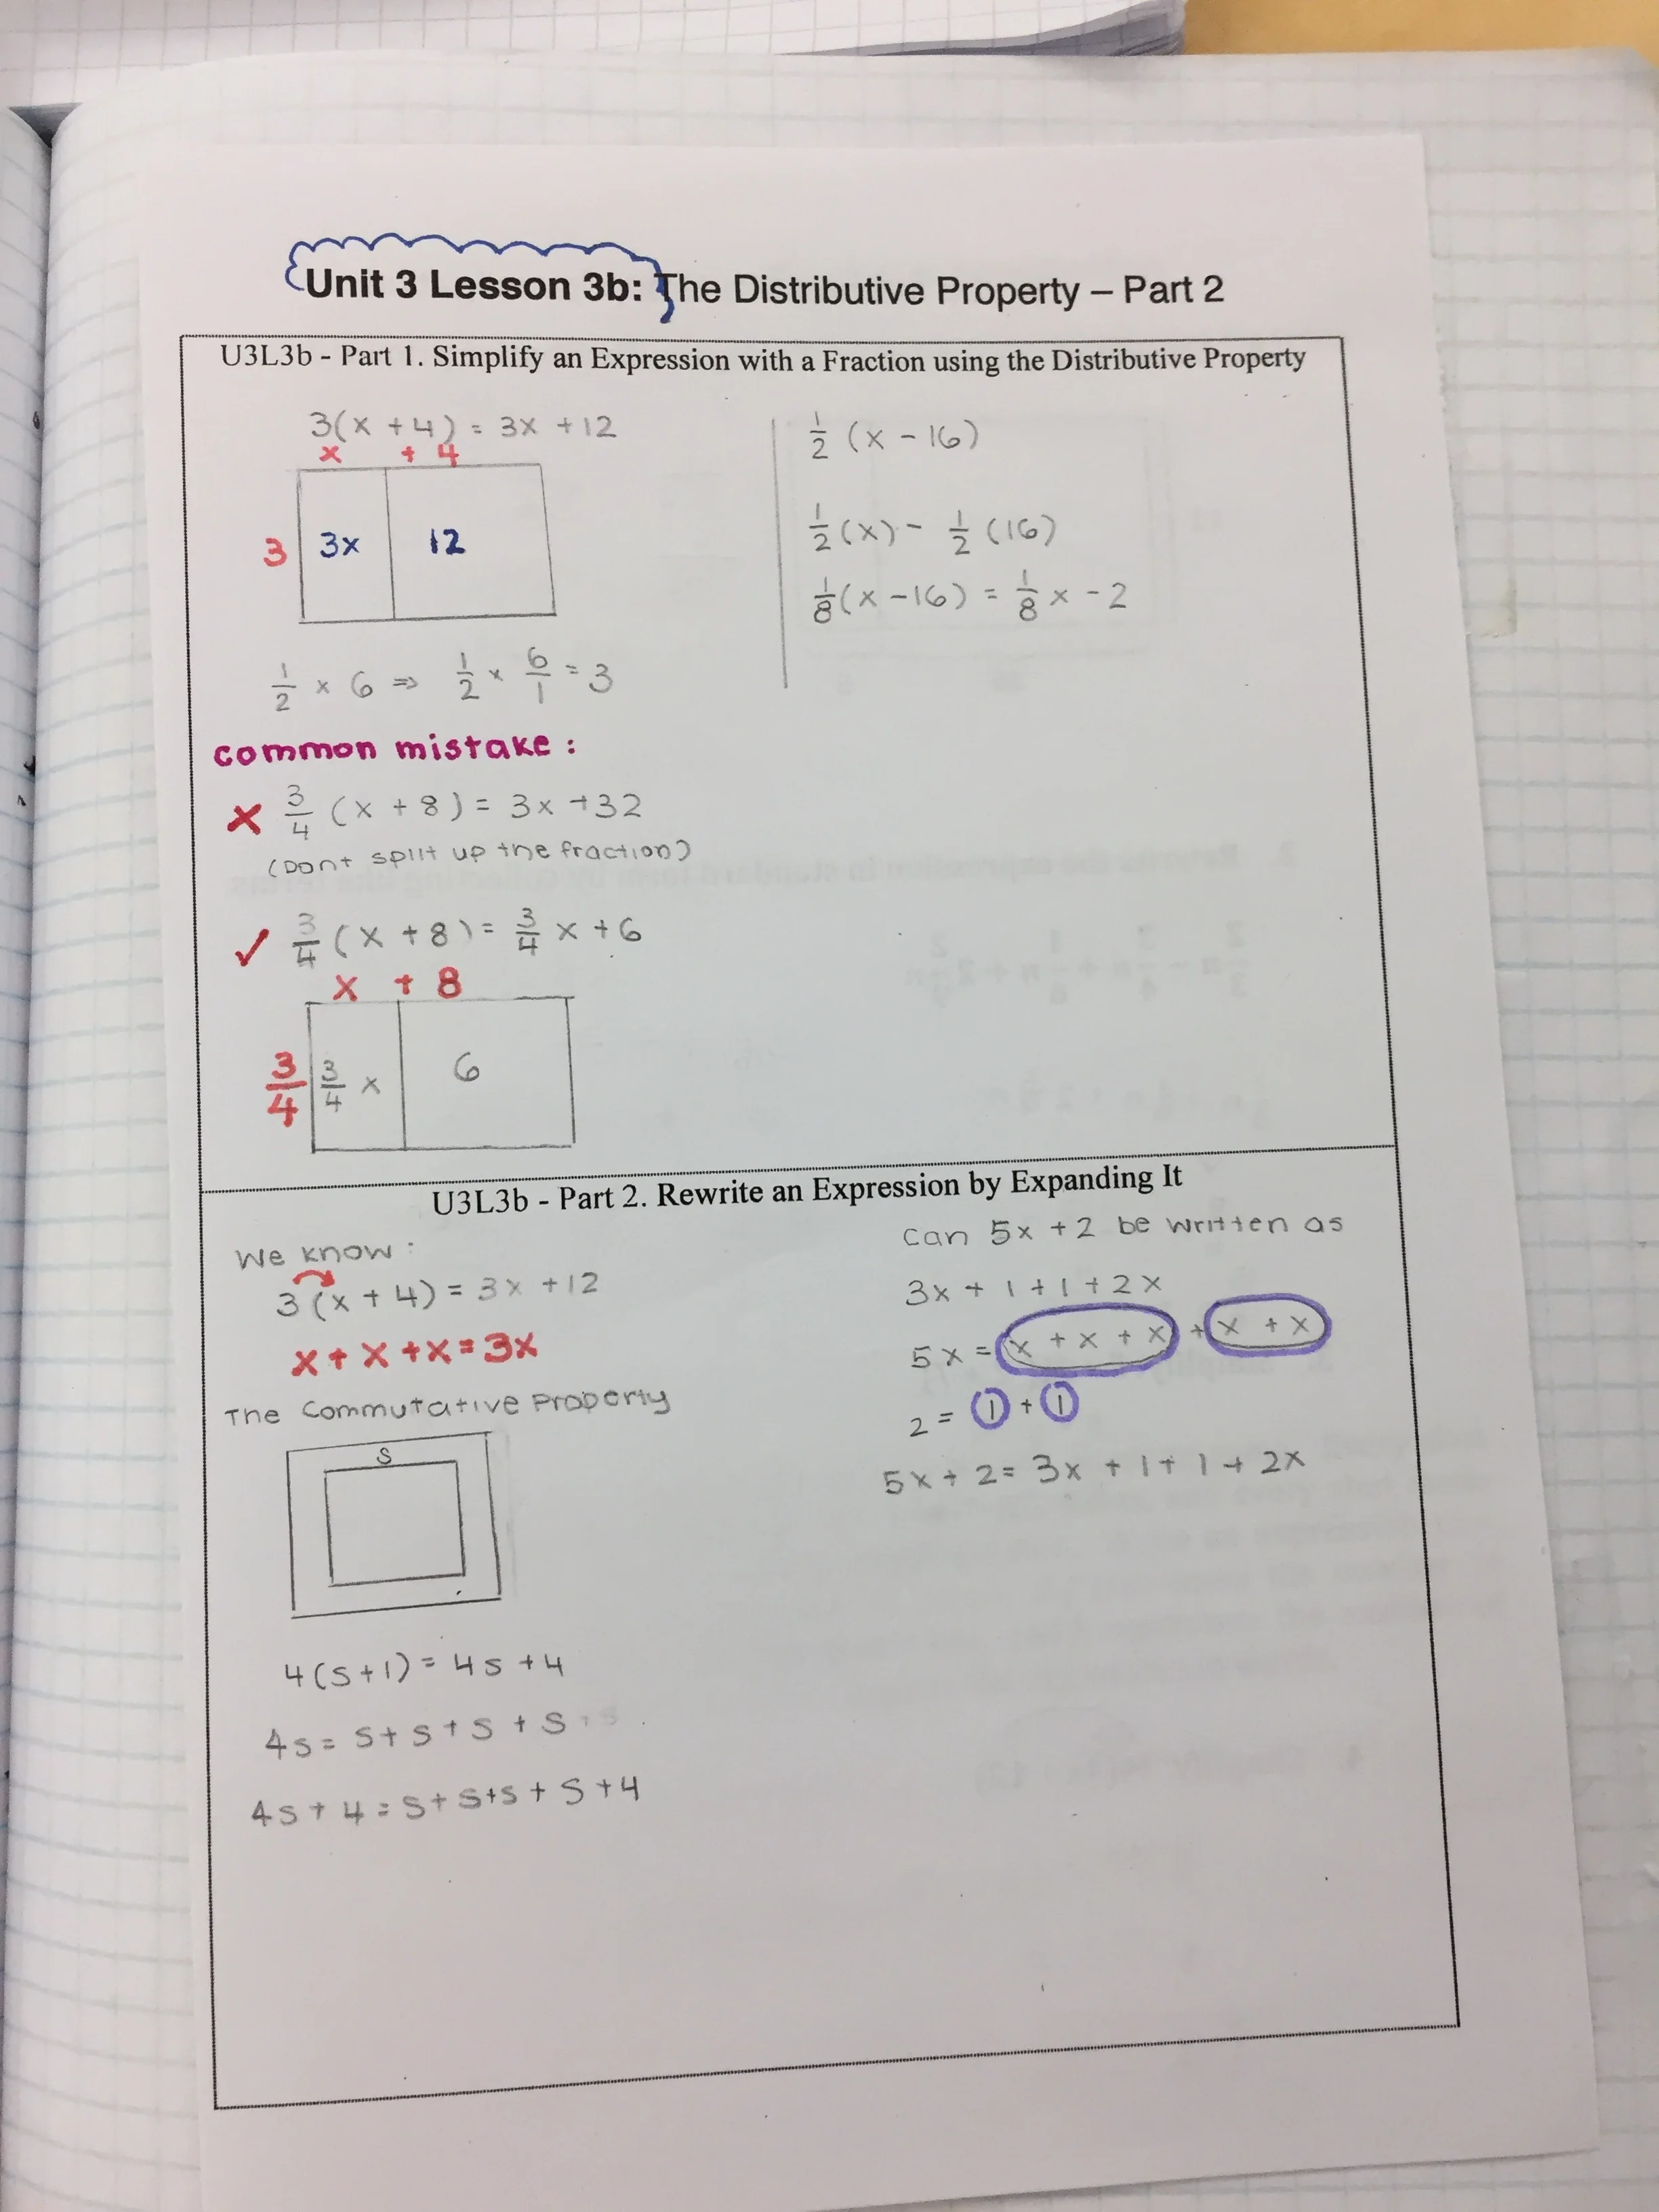 Unit 3 Lesson 3b: The Distributive Property – Part 2
U3L3b - Part 1. Simplify an Expression with a Fraction using the Distributive Property
3(x + 4) = 3x + 12
x + 4
3 3x 12
1/2 × 6 ⇒ 1/2 × 6/1 = 3
common mistake:
✗ 3/4 (x + 8) = 3x + 32
(Dont split up the fraction)
✓ 3/4 (x + 8) = 3/4 x + 6
x + 8
3/4 3/4 x 6
1/2 (x - 16)
1/2 (x) - 1/2 (16)
1/8 (x - 16) = 1/8 x - 2
U3L3b - Part 2. Rewrite an Expression by Expanding It
We know:
3(x + 4) = 3x + 12
x + x + x = 3x
The Commutative Property
S
4(s+1) = 4s + 4
4s = s + s + s + s
4s + 4 = s + s + s + s + 4
Can 5x + 2 be written as
3x + 1 + 1 + 2x
5x = x + x + x + x + x
2 = 1 + 1
5x + 2 = 3x + 1 + 1 + 2x